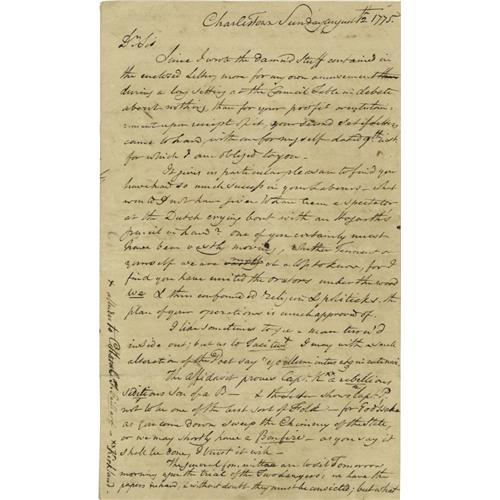 Charles Town Sunday august 12th 1775.
Dr. Sir
Since I wrote the damned Stuff contained in
the enclosed Letter more for my own amusement
during a long sitting at the Council Table in debate
about nothing, than for your profit or entertain-
ment upon receipt of it, your second set of letters
came to hand, with one for my self dated 9th inst.
for which I am obliged to you.
It gives me particular pleasure to find you
have had so much success in your Labours. What
would I not have given to have been a spectator
at the Dutch crying bout with an Hogarth's
pencil in hand? one of you certainly must
have been vastly moving, whether Tennent or
yourself we are at a loss to know, for I
find you have united the orators under the word
we & then confounded religion & politicks. the
plan of your operations is much approved of.
I like sometimes to see a man turn'd
inside out; but as to
alteration of the Poet say
The Affidavit proves Capt. K a rebellious
seditious Son of a B— & the letter shews Capt. P.
not to be one of the best sort of Folks — for God's sake
as you come down sweep the Chimney of the State,
or we may shortly have a Bonfire — as you say it
shall be done, I trust it will —
The general committee are to sit Tomorrow
morning upon the trial of the two Lawyers; we have the
papers in hand, & without doubt they must be convicted; but what